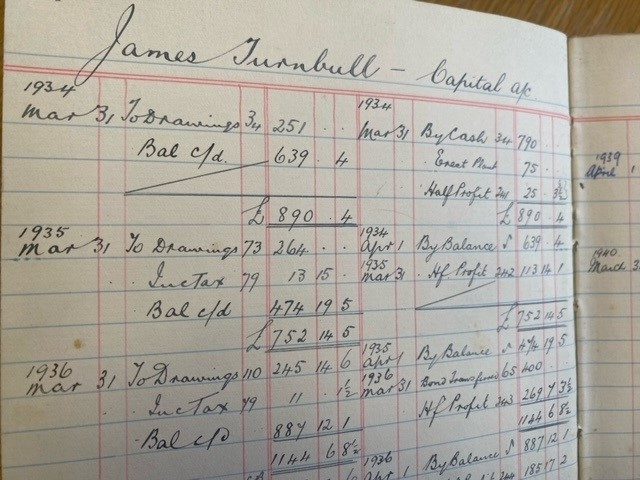 James Turnbull - Capital a/c.
1934 1934
Mar 31 To Drawings 34 251 . . Mar 31 By Cash 34 790 . .
Bal c/d. 639 . 4 Erect Plant 75 . .
Half Profit 241 25 . 3½
£ 890 . 4 £ 890 . 4
1935 1934
Mar 31 To Drawings 73 264 . . Apr 1 By Balance 639 . 4
1935
Inc Tax 79 13 15 . Mar 31 Hf Profit 242 113 14 1
Bal c/d 474 19 5
£ 752 14 5 £ 752 14 5
1936 1935
Mar 31 To Drawings 110 245 14 6 Apr 1 By Balance 474 19 5
1936
Inc Tax 79 11 . 1½ Mar 31 Bond Transferred 65 400 . .
Bal c/d 887 12 1 Hf Profit 243 269 7 3½
1144 6 8½ 1144 6 8½
1936
Apr 1 By Balance 887 12 1
244 185 17 2
1939
April 1
1940
March 3